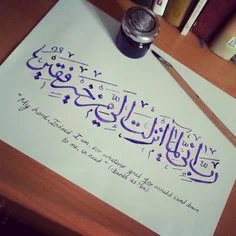 رب إني لما أنزلت إلي من خير فقير
"My Lord, Indeed I am, for whatever good You would send down
to me, in need"
(Surah 28:24)